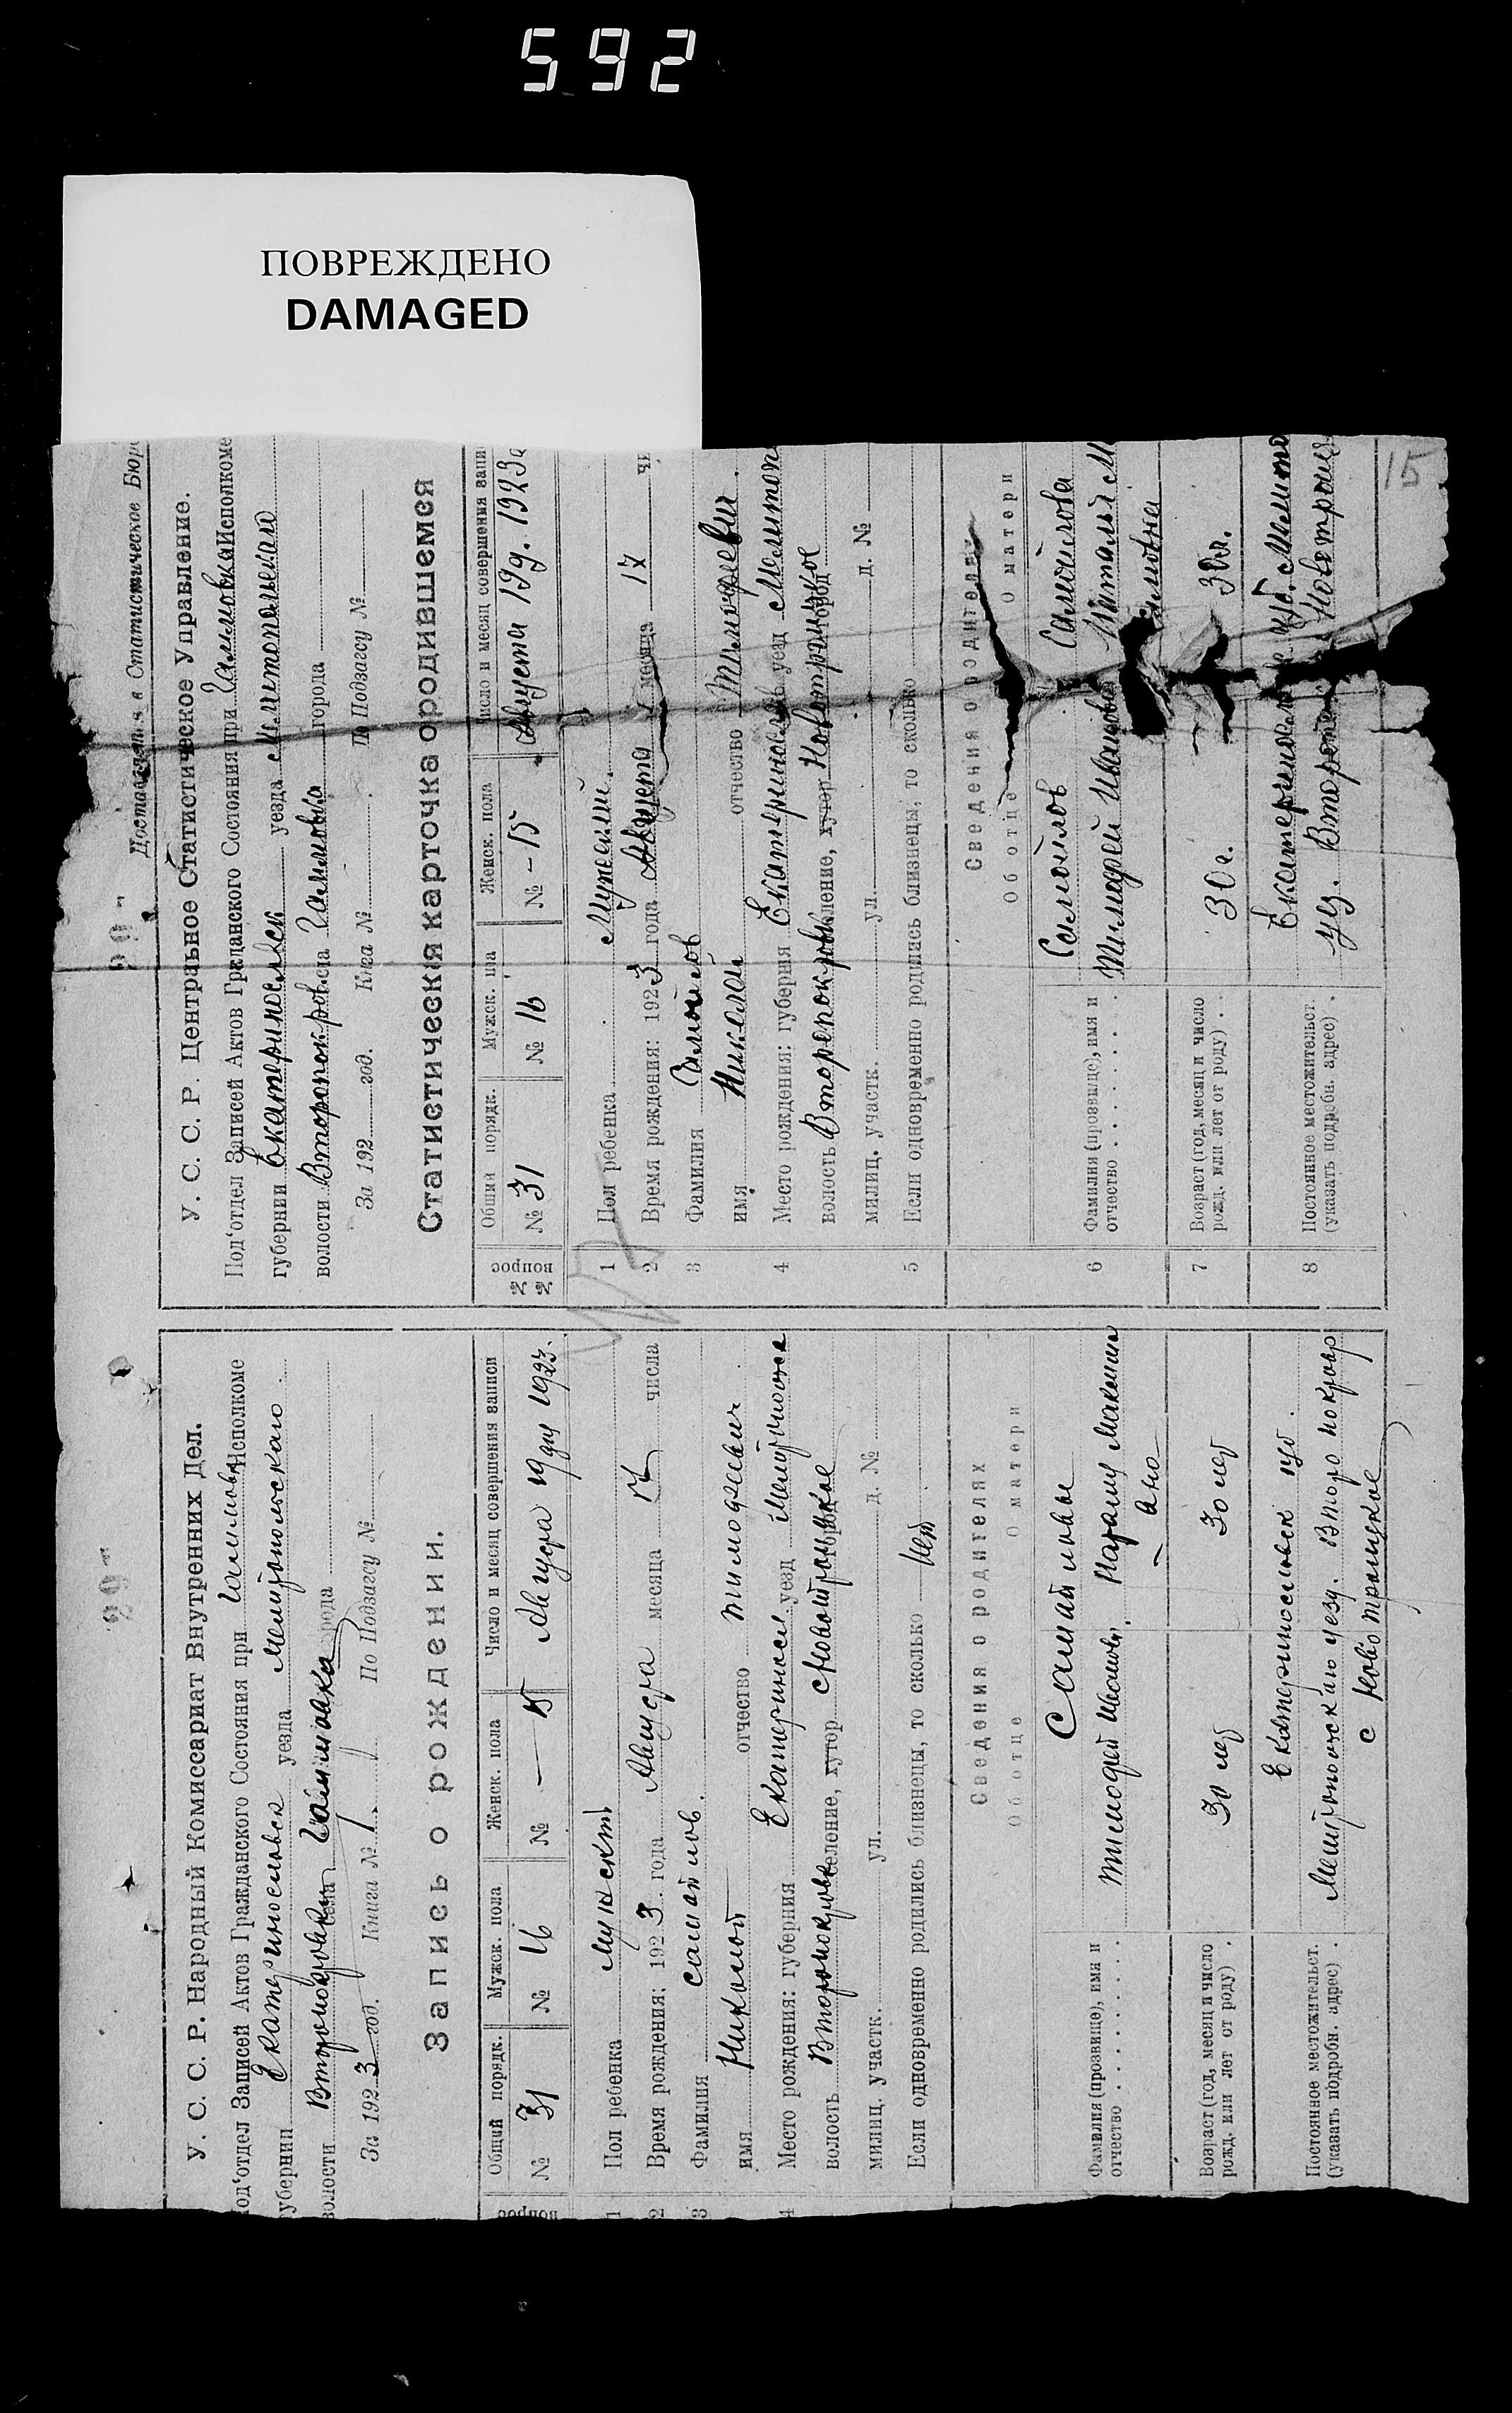 592
ПОВРЕЖДЕНО
DAMAGED
29
У. С. С. Р. Народный Комиссариат Внутренних Дел.
под‘отдел Записей Актов Гражданского Состояния при Исполкоме
губернии Екатеринославск уезда Мелитопольскаго
волости Второпокровки села города
За 1923 год. Книга № 1 По Подзагсу №
Запись о рождении.
вопрос Общий порядк. Мужск. пола Женск. пола Число и месяц совершения записи
№ 31 № 16 № — 15 Августа 19 дня 1923.
1 Пол ребенка мужской
2 Время рождения: 1923 года Августа месяца 17 числа
3 Фамилия Самойлов.
имя Николай отчество Тимофеевич
4 Место рождения: губерния Екатериносл. уезд Мелитопол
волость Второпокровк селение, хутор Новотроицкое город
милиц. участк. ул. д. №
Если одновременно родились близнецы, то сколько нет
Сведения о родителях
Об отце О матери
Фамилия (прозвище), имя и отчество
Самойловы
Тимофей Иванов. Максим
Возраст (год, месяц и число рожд. или лет от роду)
30 лет 30 лет
Постоянное местожительст. (указать подробн. адрес)
Екатеринославск губ.
Мелитопольскаго уезд. Второпокровр
с Новотроицкое
29
Доставляется в Статистическое Бюро
У. С. С. Р. Центральное Статистическое Управление.
Под‘отдел Записей Актов Гражданского Состояния при Исполкоме
губернии Екатеринославск уезда Мелитопольскаго
волости Второпокров. села города
За 192 год. Книга № По Подзагсу №
Статистическая карточка о родившемся
№№ вопрос Общий порядк. Мужск. пола Женск. пола Число и месяц совершения запи
№ 31 № 16 № – 15 Августа 19 д. 1923
1 Пол ребенка Мужский.
2 Время рождения: 1923 года Августа месяца 17 чи
3 Фамилия Самойлов
имя Николай отчество Тимофеевич.
4 Место рождения: губерния Екатеринослав уезд Мелитоп
волость Второпокровк селение, хутор Новотроицкое город
милиц. участк. ул. д. №
5 Если одновременно родились близнецы, то сколько
Сведения о родителях
Об отце О матери
6 Фамилия (прозвище), имя и отчество
Самойлов Самойлова
Тимофей Иванович Наталья М
7 Возраст (год, месяц и число рожд. или лет от роду)
30 л. 30 л.
8 Постоянное местожительст. (указать подробн. адрес)
губ. Мелито
уу. Новотроиц
15